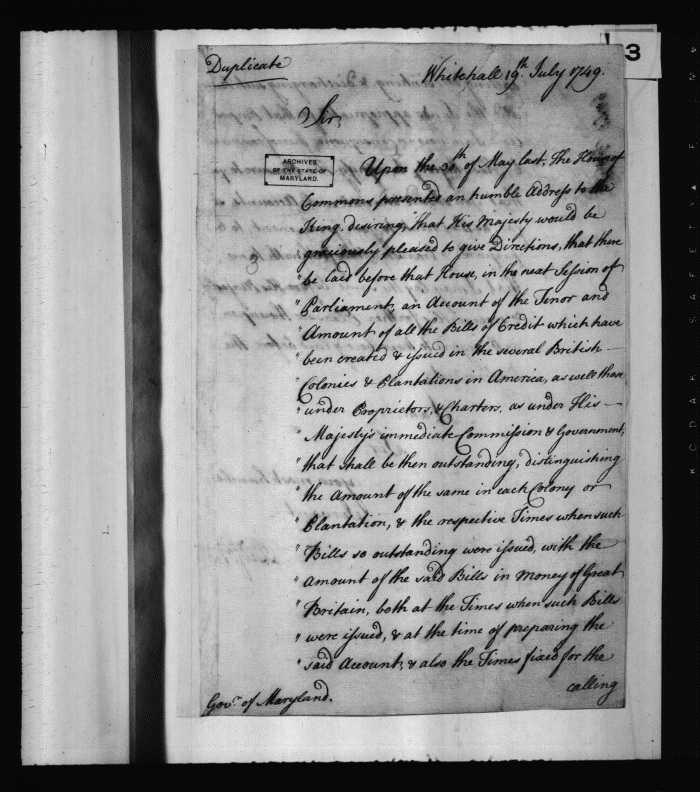 3
Duplicate
Whitehall 19th. July 1749.
Sir,
ARCHIVES
OF THE STATE OF
MARYLAND.
Upon the 30th of May last, The House of
Commons presented an humble Address to the
King, desiring, "that His Majesty would be
graciously pleased to give Directions, that there
" be laid before that House, in the next Session of
" Parliament, an Account of the Tenor and
" Amount of all the Bills of Credit which have
" been created & issued in the several British
" Colonies & Plantations in America, as well those
" under Proprietors, & Charters, as under His
" Majesty's immediate Commission & Government,
" that shall be then outstanding, distinguishing
" the Amount of the same in each Colony or
" Plantation, & the respective Times when such
" Bills so outstanding were issued, with the
" Amount of the said Bills in Money of Great
" Britain, both at the Times when such Bills
" were issued, & at the time of preparing the
" said Account, & also the Times fixed for the
calling
Govr. of Maryland.
KODAK SAFETY